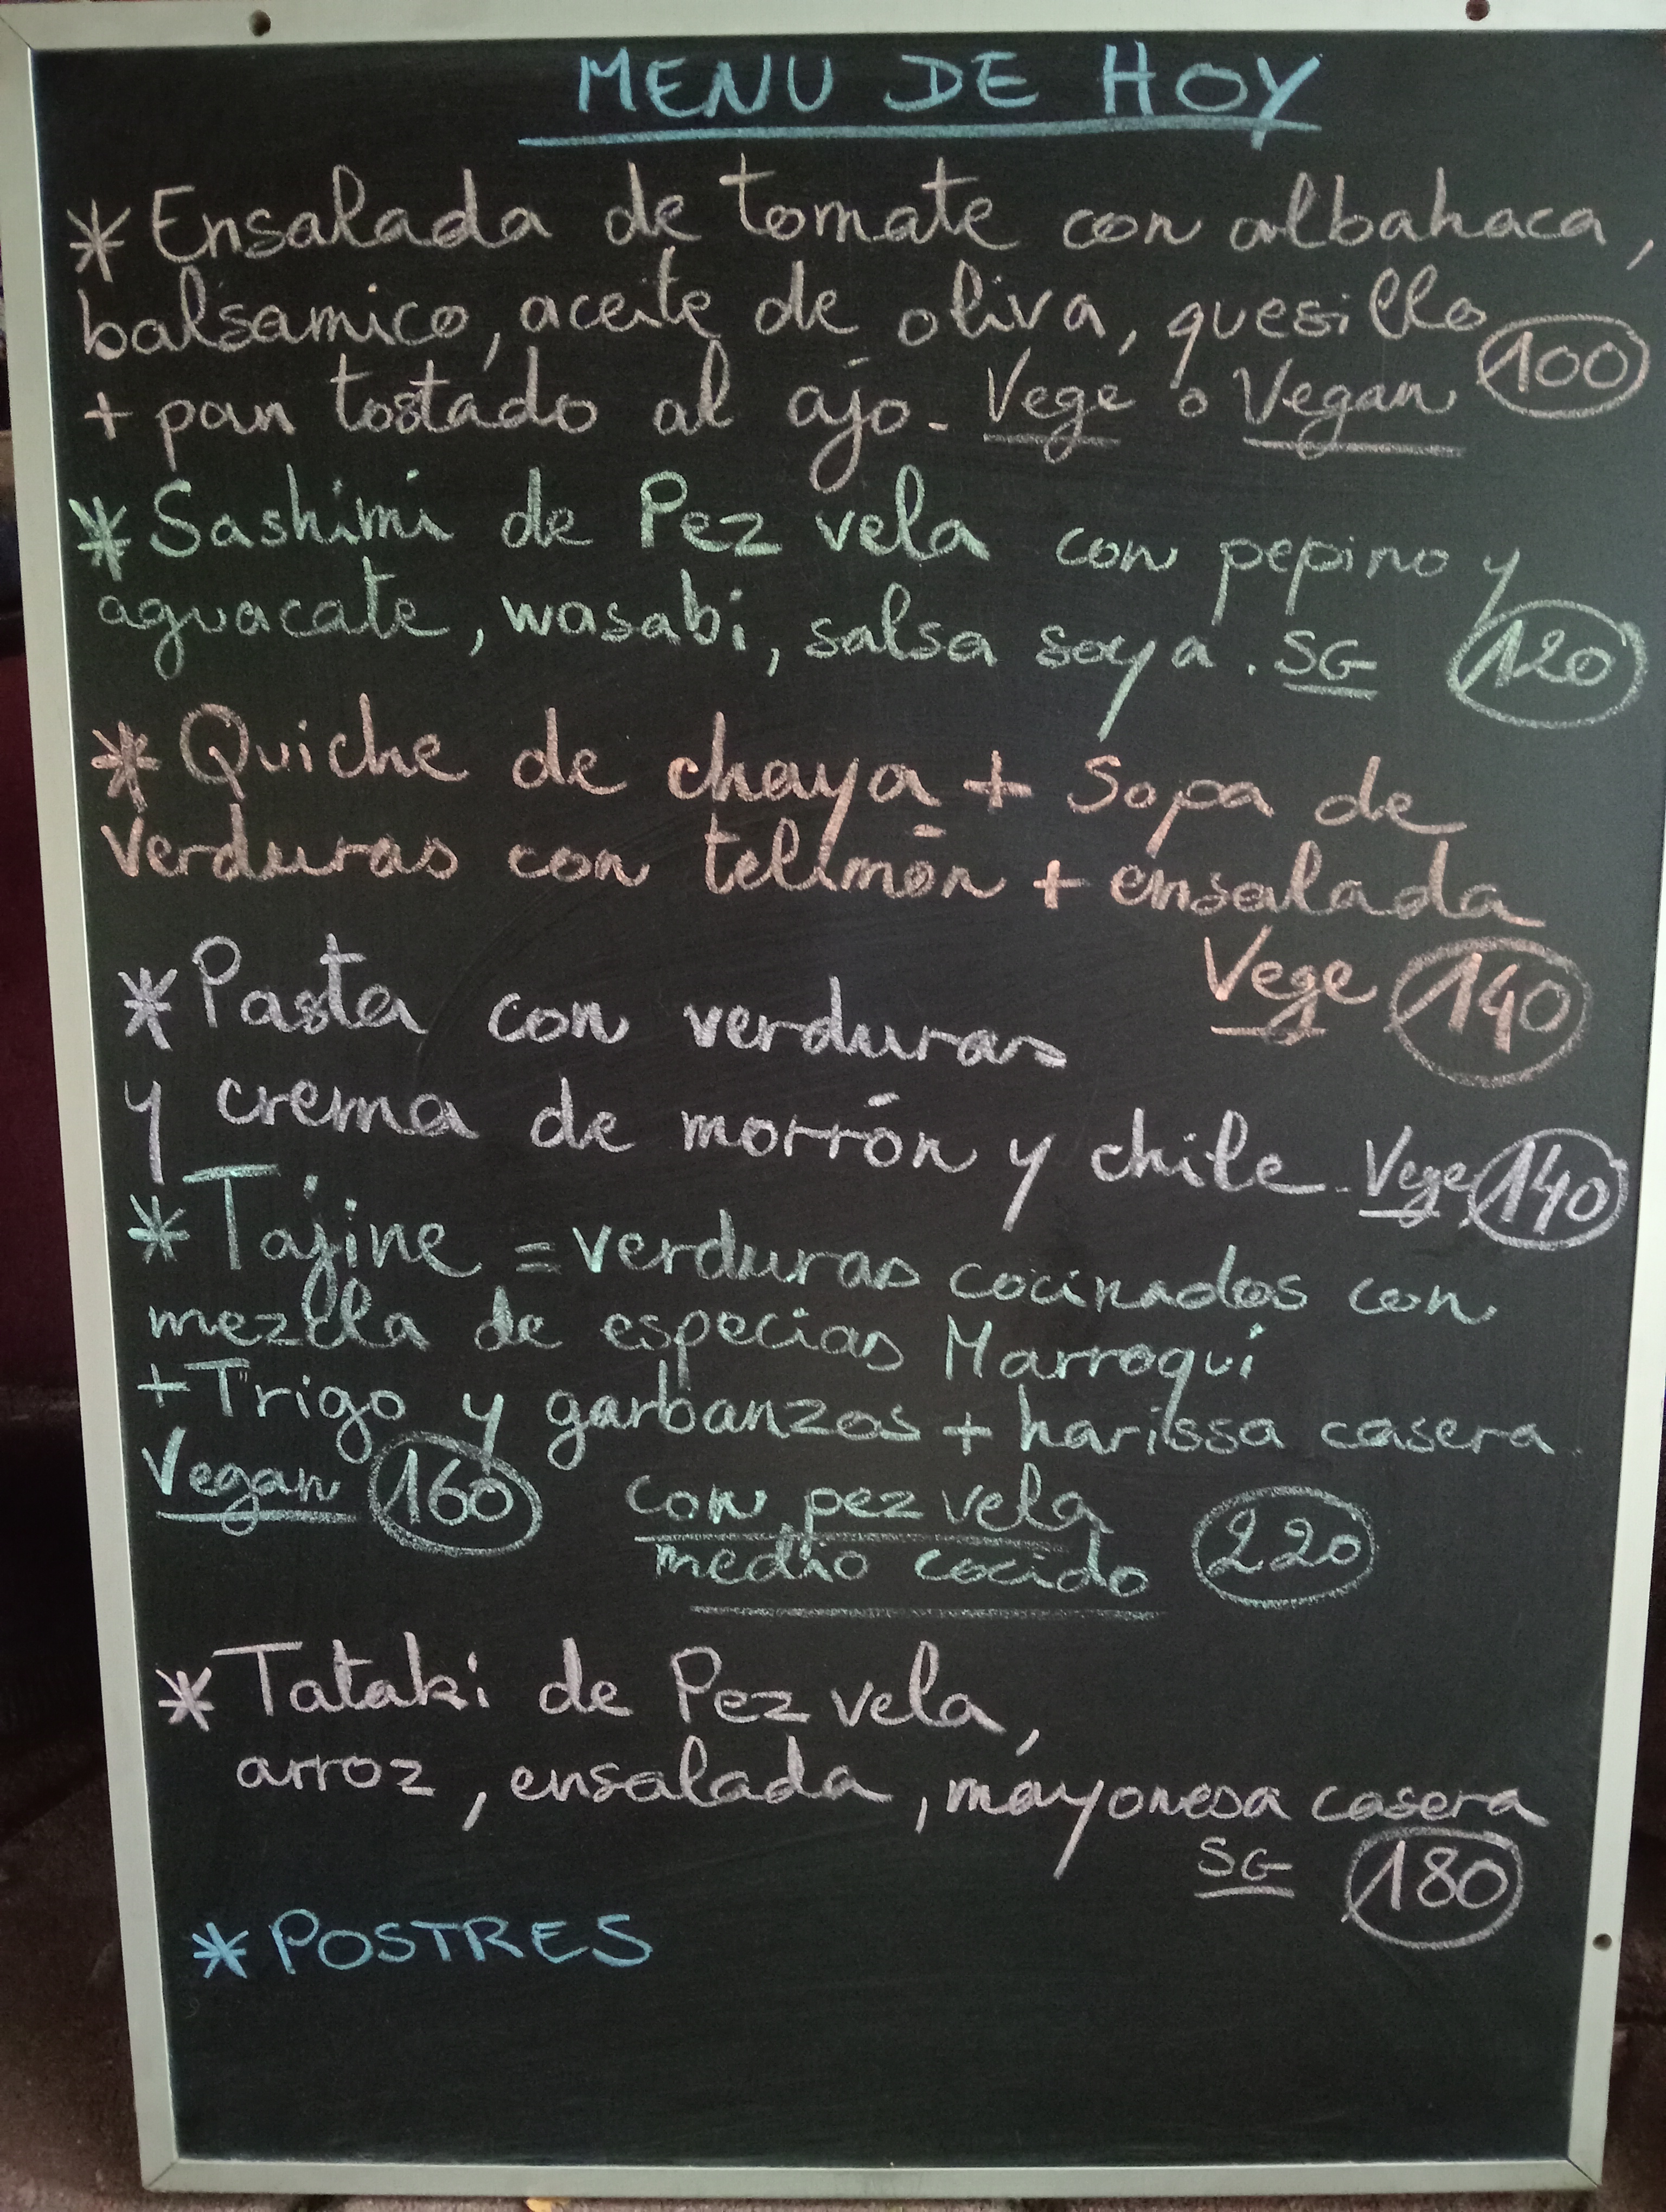 MENU DE HOY
* Ensalada de tomate con albahaca,
balsamico, aceite de oliva, quesillo
+ pan tostado al ajo. Vege o Vegan 100
* Sashimi de Pez vela con pepino y
aguacate, wasabi, salsa soya. SG 120
* Quiche de chaya + Sopa de
verduras con telimón + ensalada
Vege 140
* Pasta con verduras
y crema de morrón y chile. Vege 140
* Tajine = verduras cocinados con
mezcla de especias Marroqui
+ Trigo y garbanzos + harissa casera
Vegan 160 con pez vela 220
medio cocido
* Tataki de Pez vela,
arroz, ensalada, mayonesa casera
SG 180
* POSTRES